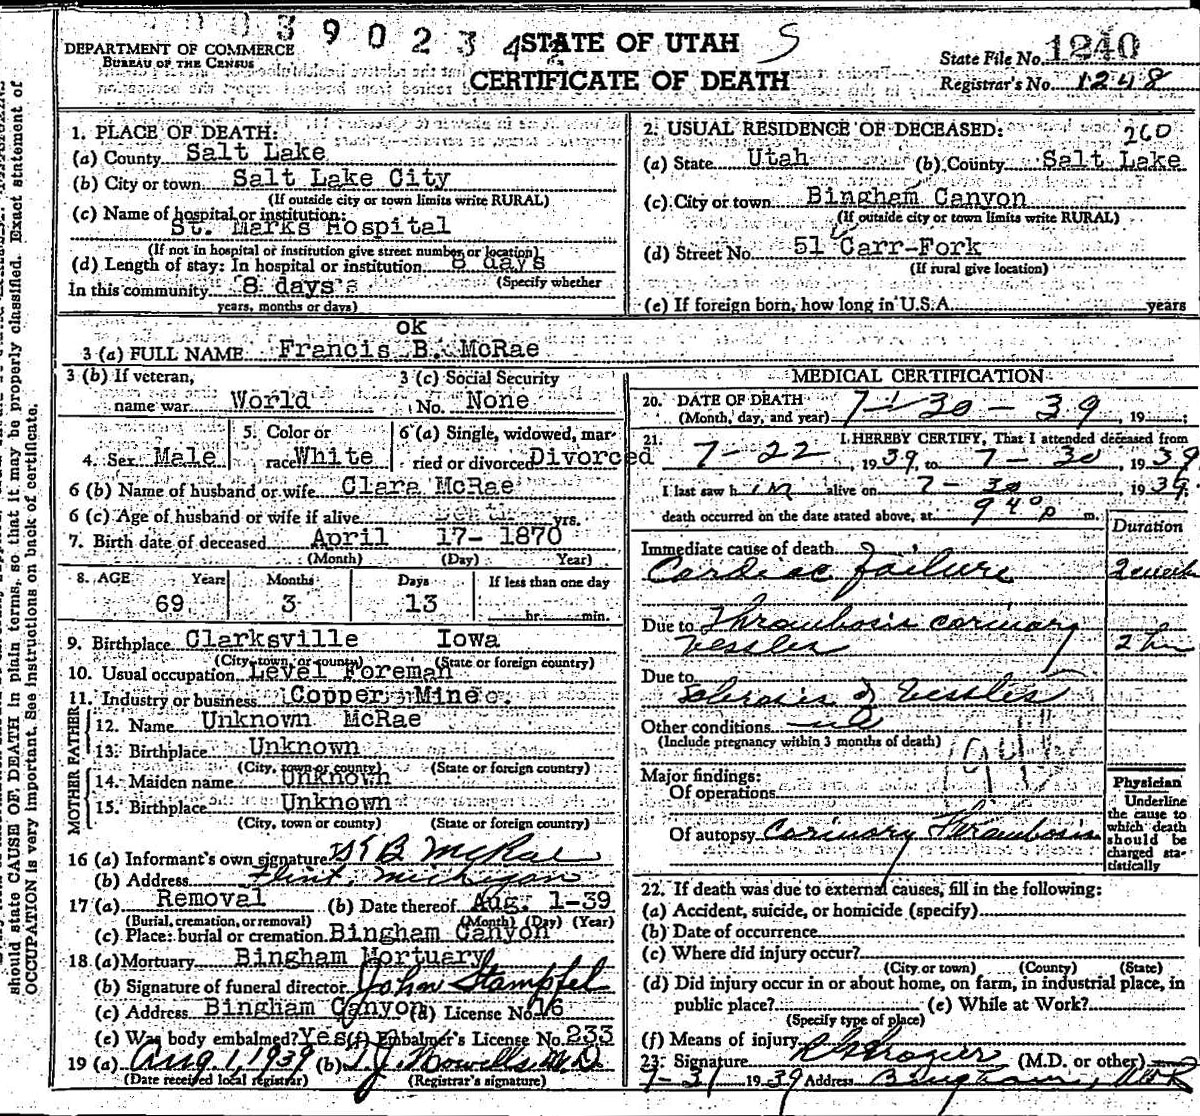 0039023 42
DEPARTMENT OF COMMERCE
BUREAU OF THE CENSUS
STATE OF UTAH S
CERTIFICATE OF DEATH
State File No. 1240
Registrar's No. 1248
should state CAUSE OF DEATH in plain terms, so that it may be properly classified. Exact statement of
OCCUPATION is very important. See instructions on back of certificate.
1. PLACE OF DEATH:
(a) County Salt Lake
(b) City or town Salt Lake City
(If outside city or town limits write RURAL)
(c) Name of hospital or institution:
St. Marks Hospital
(If not in hospital or institution give street number or location)
(d) Length of stay: In hospital or institution 8 days
(Specify whether
In this community 8 days
years, months or days)
2. USUAL RESIDENCE OF DECEASED: 260
(a) State Utah (b) County Salt Lake
(c) City or town Bingham Canyon
(If outside city or town limits write RURAL)
(d) Street No. 51 Carr-Fork
(If rural give location)
(e) If foreign born, how long in U.S.A. years
ok
3 (a) FULL NAME Francis B. McRae
3 (b) If veteran,
name war World
3 (c) Social Security
No. None
4. Sex Male
5. Color or
race White
6 (a) Single, widowed, mar-
ried or divorced Divorced
6 (b) Name of husband or wife Clara McRae
6 (c) Age of husband or wife if alive yrs.
7. Birth date of deceased April 17- 1870
(Month) (Day) Year)
8. AGE Years Months Days If less than one day
69 3 13 hr. min.
9. Birthplace Clarksville Iowa
(City, town or county) (State or foreign country)
10. Usual occupation Level Foreman
11. Industry or business Copper Mine.
FATHER
12. Name Unknown McRae
13. Birthplace Unknown
(City, town or county) (State or foreign country)
MOTHER
14. Maiden name Unknown
15. Birthplace Unknown
(City, town or county) (State or foreign country)
16 (a) Informant's own signature B McRae
(b) Address Flint, Michigan
17 (a) Removal (b) Date thereof Aug. 1-39
(Burial, cremation, or removal) (Month) (Day) (Year)
(c) Place: burial or cremation Bingham Canyon
18 (a) Mortuary Bingham Mortuary
(b) Signature of funeral director John Stampfel
(c) Address Bingham Canyon (d) License No. 16
(e) Was body embalmed? Yes (f) Embalmer's License No. 233
19 (a) Aug 1, 1939 (b) T. J. Howells M.D
(Date received local registrar) (Registrar's signature)
MEDICAL CERTIFICATION
20. DATE OF DEATH
(Month, day, and year) 7-30-39, 19 ;
21. I HEREBY CERTIFY, That I attended deceased from
7-22, 1939, to 7-30, 1939
I last saw him alive on 7-30, 1939.
death occurred on the date stated above, at 9 40 p m.
Duration
Immediate cause of death
Cardiac failure 2 week
Due to Thrombosis corinary
Vessles 2 hr
Due to
Sclerosis of Vessles
Other conditions
(Include pregnancy within 3 months of death)
Major findings:
Of operations
Of autopsy Corinary Thrombosis
Physician
Underline
the cause to
which death
should be
charged sta-
tistically
22. If death was due to external causes, fill in the following:
(a) Accident, suicide, or homicide (specify)
(b) Date of occurrence
(c) Where did injury occur?
(City or town) (County) (State)
(d) Did injury occur in or about home, on farm, in industrial place, in
public place? (e) While at Work?
(Specify type of place)
(f) Means of injury
23. Signature Frazier (M.D. or other)
7-31 1939 Address Bingham,